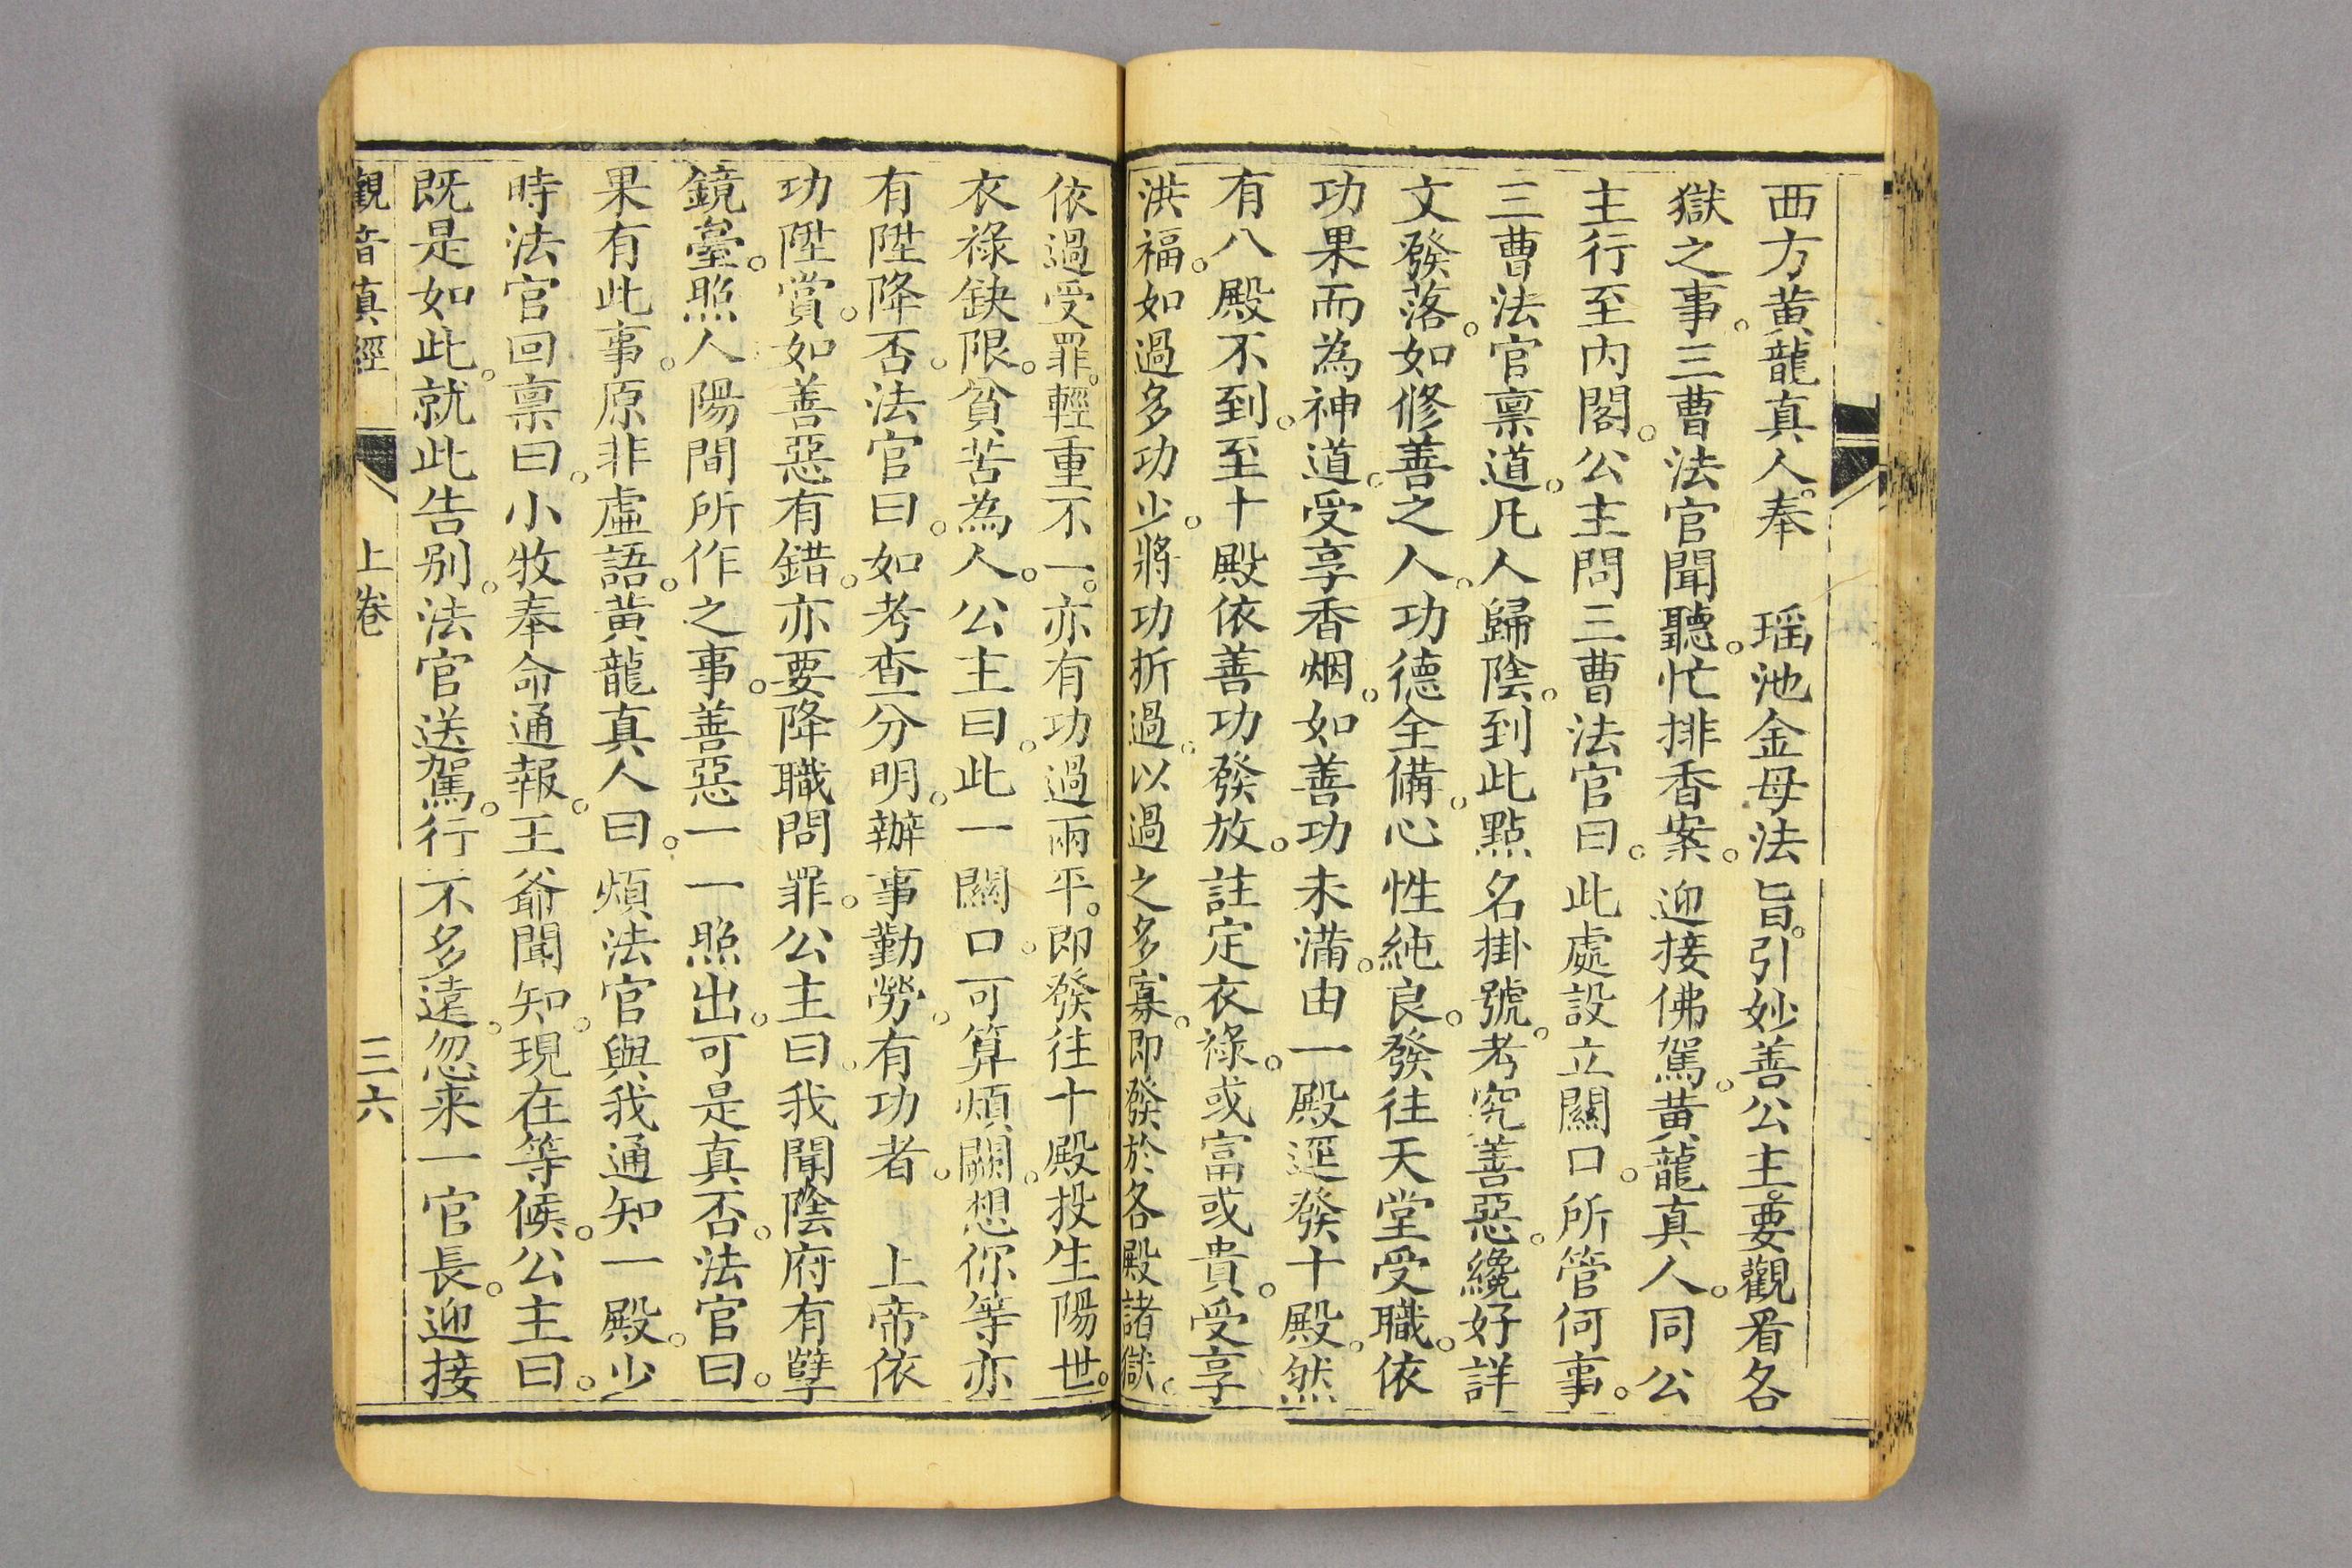 西方黃龍真人。奉　瑶池金母法旨。引妙善公主。要觀看各
獄之事。三曹法官聞聽。忙排香案。迎接佛駕。黃龍真人。同公
主行至內閣。公主問三曹法官曰。此處設立關口。所管何事。
三曹法官禀道。凡人歸陰。到此點名掛號。考究善惡。纔好詳
文發落。如修善之人。功德全備。心性純良。發往天堂受職。依
功果而為神道。受享香烟。如善功未滿。由一殿逕發十殿。然
有八殿不到。至十殿依善功發放。註定衣祿。或富或貴。受享
洪福。如過多功少。將功折過。以過之多寡。即發於各殿諸獄。
依過受罪。輕重不一。亦有功過兩平。即發往十殿投生陽世。
衣祿缺限。貧苦為人。公主曰。此一關口。可算煩關。想你等亦
有陞降否。法官曰。如考查分明。辦事勤勞。有功者。　上帝依
功陞賞。如善惡有錯。亦要降職問罪。公主曰。我聞陰府有孽
鏡臺。照人陽間所作之事。善惡一一照出。可是真否。法官曰。
果有此事。原非虛語。黃龍真人曰。煩法官與我通知一殿。少
時法官回禀曰。小牧奉命通報。王爺聞知。現在等候。公主曰。
既是如此。就此告別。法官送駕。行不多遠。忽来一官長。迎接
觀音真經　上卷　三六